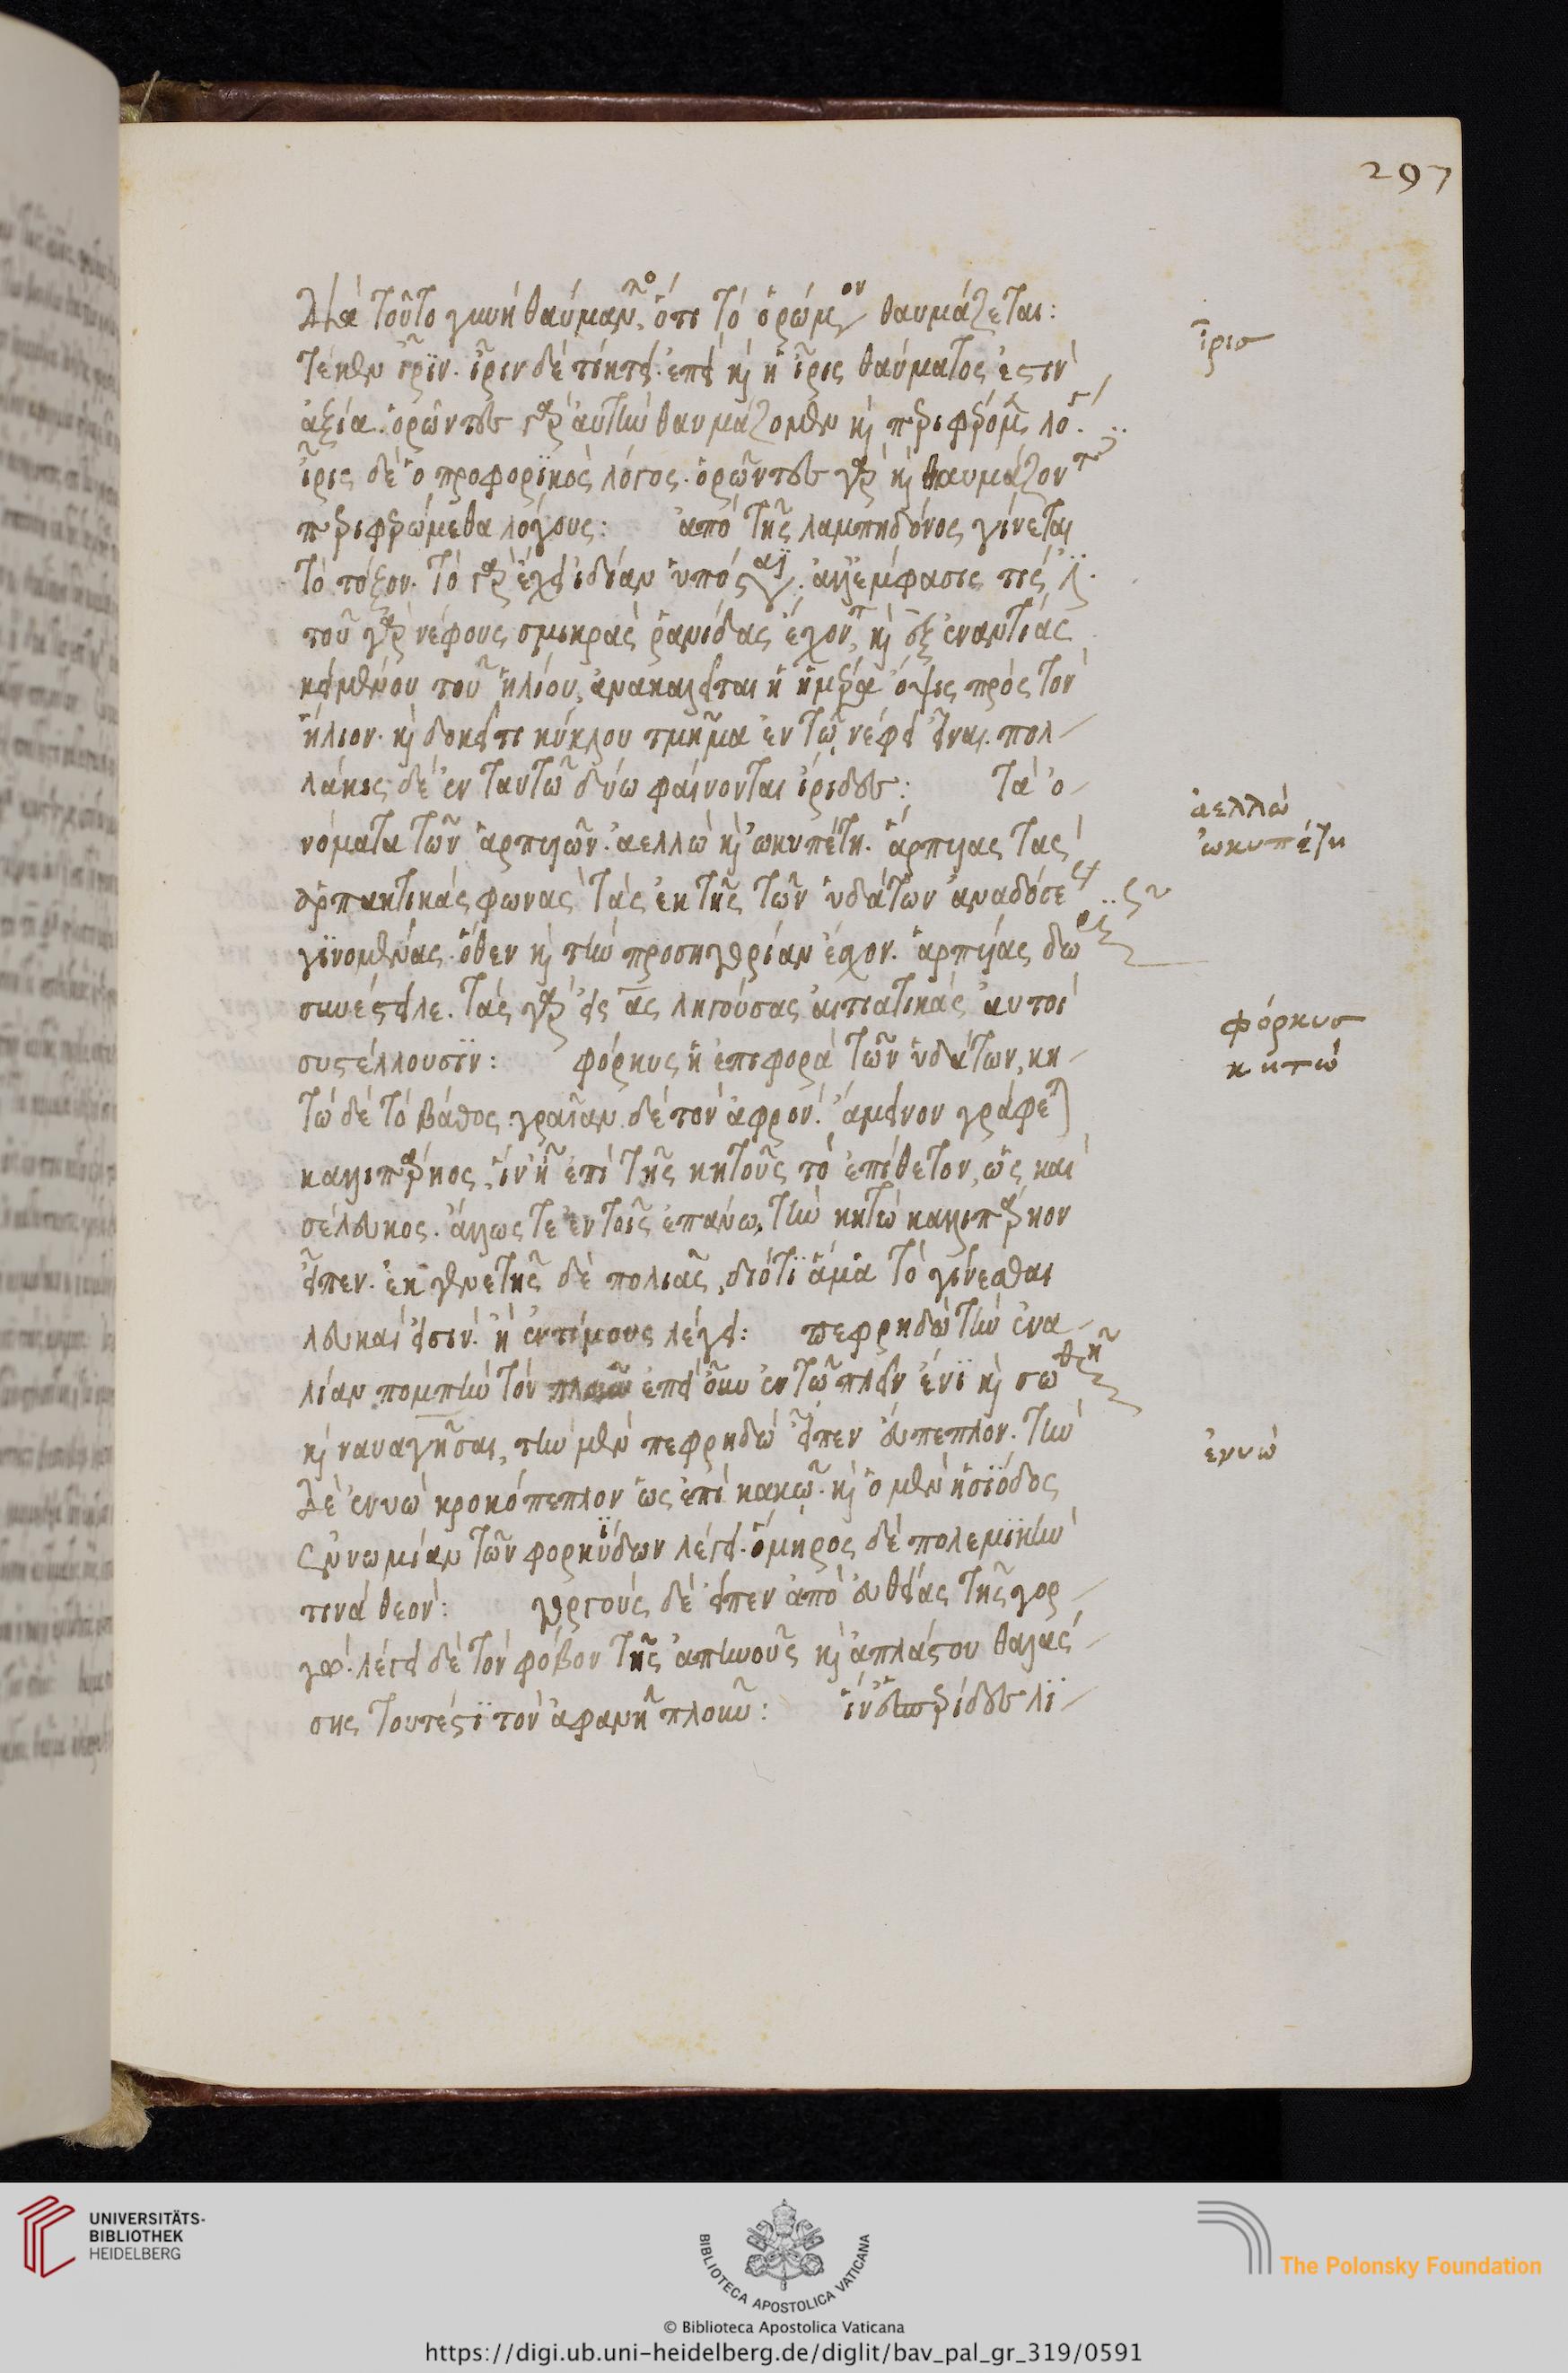 297
Διὰ τοῦτο γυνὴ θαύμαντο, ὅτι τὸ ὁρώμενον θαυμάζεται:
ἶρισ
τέκεν ἶριν. ἶριν δὲ τίκτει. ἐπεὶ καὶ ἡ ἶρις θαύματος ἐστὶν
ἀξία. ὁρῶντες γὰρ αὐτὴν θαυμάζομεν καὶ περιφερόμεθα λό
ἶρις δὲ ὁ προφορϊκὸς λόγος. ὁρῶντες γὰρ καὶ θαυμάζοντες
περιφερώμεθα λόγους: ἀπὸ τῆς λαμπηδόνος γίνεται
τὸ τόξον. τὸ γὰρ ἔχει ἰδίαν ὑπόστασιν. ἀλλ' ἔμφασις τις
τοῦ γὰρ νέφους σμικρὰς ῥανίδας ἔχοντος, καὶ ἐξ ἐναντίας
κειμένου τοῦ ἡλίου, ἀνακλᾶται ἡ ἡμετέρα ὄψις πρὸς τὸν
ἥλιον. καὶ δοκεῖ τι κύκλου τμῆμα ἐν τῶ νέφει εἶναι. πολ
λάκις δὲ ἐν ταυτῶ δύω φαίνονται ἴριδες: τὰ ὀ
ἀελλὼ
νόματα τῶν ἁρπυιῶν. ἀελλὼ καὶ ὠκυπέτη. ἅρπυιας τὰς
ὠκυπέτη
ἁρπακτικάς φωνὰς τὰς ἐκ τῆς τῶν ὑδάτων ἀναδόσεως
γϊνομένας. ὅθεν καὶ τὴν προσηγορίαν ἔχον. ἁρπυίας
συνέστειλε. τὰς γὰρ εἰς ας ληγούσας αἰτιατικὰς αὐτοὶ
φόρκυσ
συστέλλουσϊν: φόρκυς ἡ ἐπιφορὰ τῶν ὑδάτων, κη
κητὼ
τὼ δὲ τὸ βάθος. γραῖαν δὲ τὸν ἀφρόν. ἄμεινον γράφεται
καλλιπάρηος, ἵν' ῆ ἐπὶ τῆς κητοῦς τὸ ἐπίθετον, ὡς καὶ
ἄλλως τε ἐν τοῖς ἐπάνω, τὴν κητὼ καλλιπάρηον
εἶπεν. ἐκ γενετῆς δὲ πολιὰς, διότϊ ἅμα τὸ γίνεσθαι
λευκαί εἰσιν. ἢ ἐντίμους λέγει: πεφρηδὼ τὴν ἐνα
λίαν πομπὴν τὸν ἐπεὶ οὖν ἐν τῶ πλεῖν ἔνϊ καὶ σωθῆναι
καὶ ναυαγῆσαι, τὴν μὲν πεφρηδὼ εἶπεν εὔπεπλον. τὴν
ἐνυώ
δὲ ἐνυὼ κροκόπεπλον ὡς ἐπὶ κακῶ. καὶ ὁ μὲν ἡσϊόδος
τῶν φορκύδων λέγει. ὅμηρος δὲ πολεμϊκὴν
τινὰ θεόν: γοργοὺς δὲ εἶπεν ἀπὸ εὐθείας τῆς γορ
γώ. λέγει δὲ τὸν φόβον τῆς ἀπηνοῦς καὶ ἀπλάστου θαλάσ
σης τουτέστϊ τὸν ἀφανῆ πλοῦν: ἵν' ἑσπερίδες λϊ
UNIVERSITÄTS-
BIBLIOTHEK
HEIDELBERG
BIBLIOTECA APOSTOLICA VATICANA
The Polonsky Foundation
© Biblioteca Apostolica Vaticana
https://digi.ub.uni-heidelberg.de/diglit/bav_pal_gr_319/0591